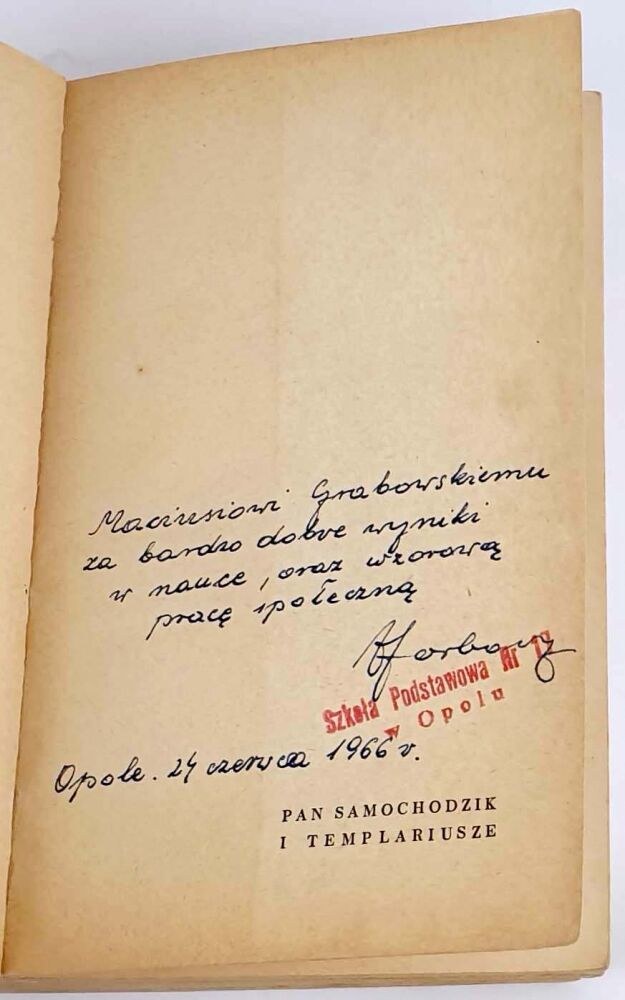 Maciusiowi Grabowskiemu
za bardzo dobre wyniki
w nauce, oraz wzorową
pracę społeczną
Szkoła Podstawowa Nr
w Opolu
Opole. 24 czerwca 1966 r.
PAN SAMOCHODZIK
I TEMPLARIUSZE